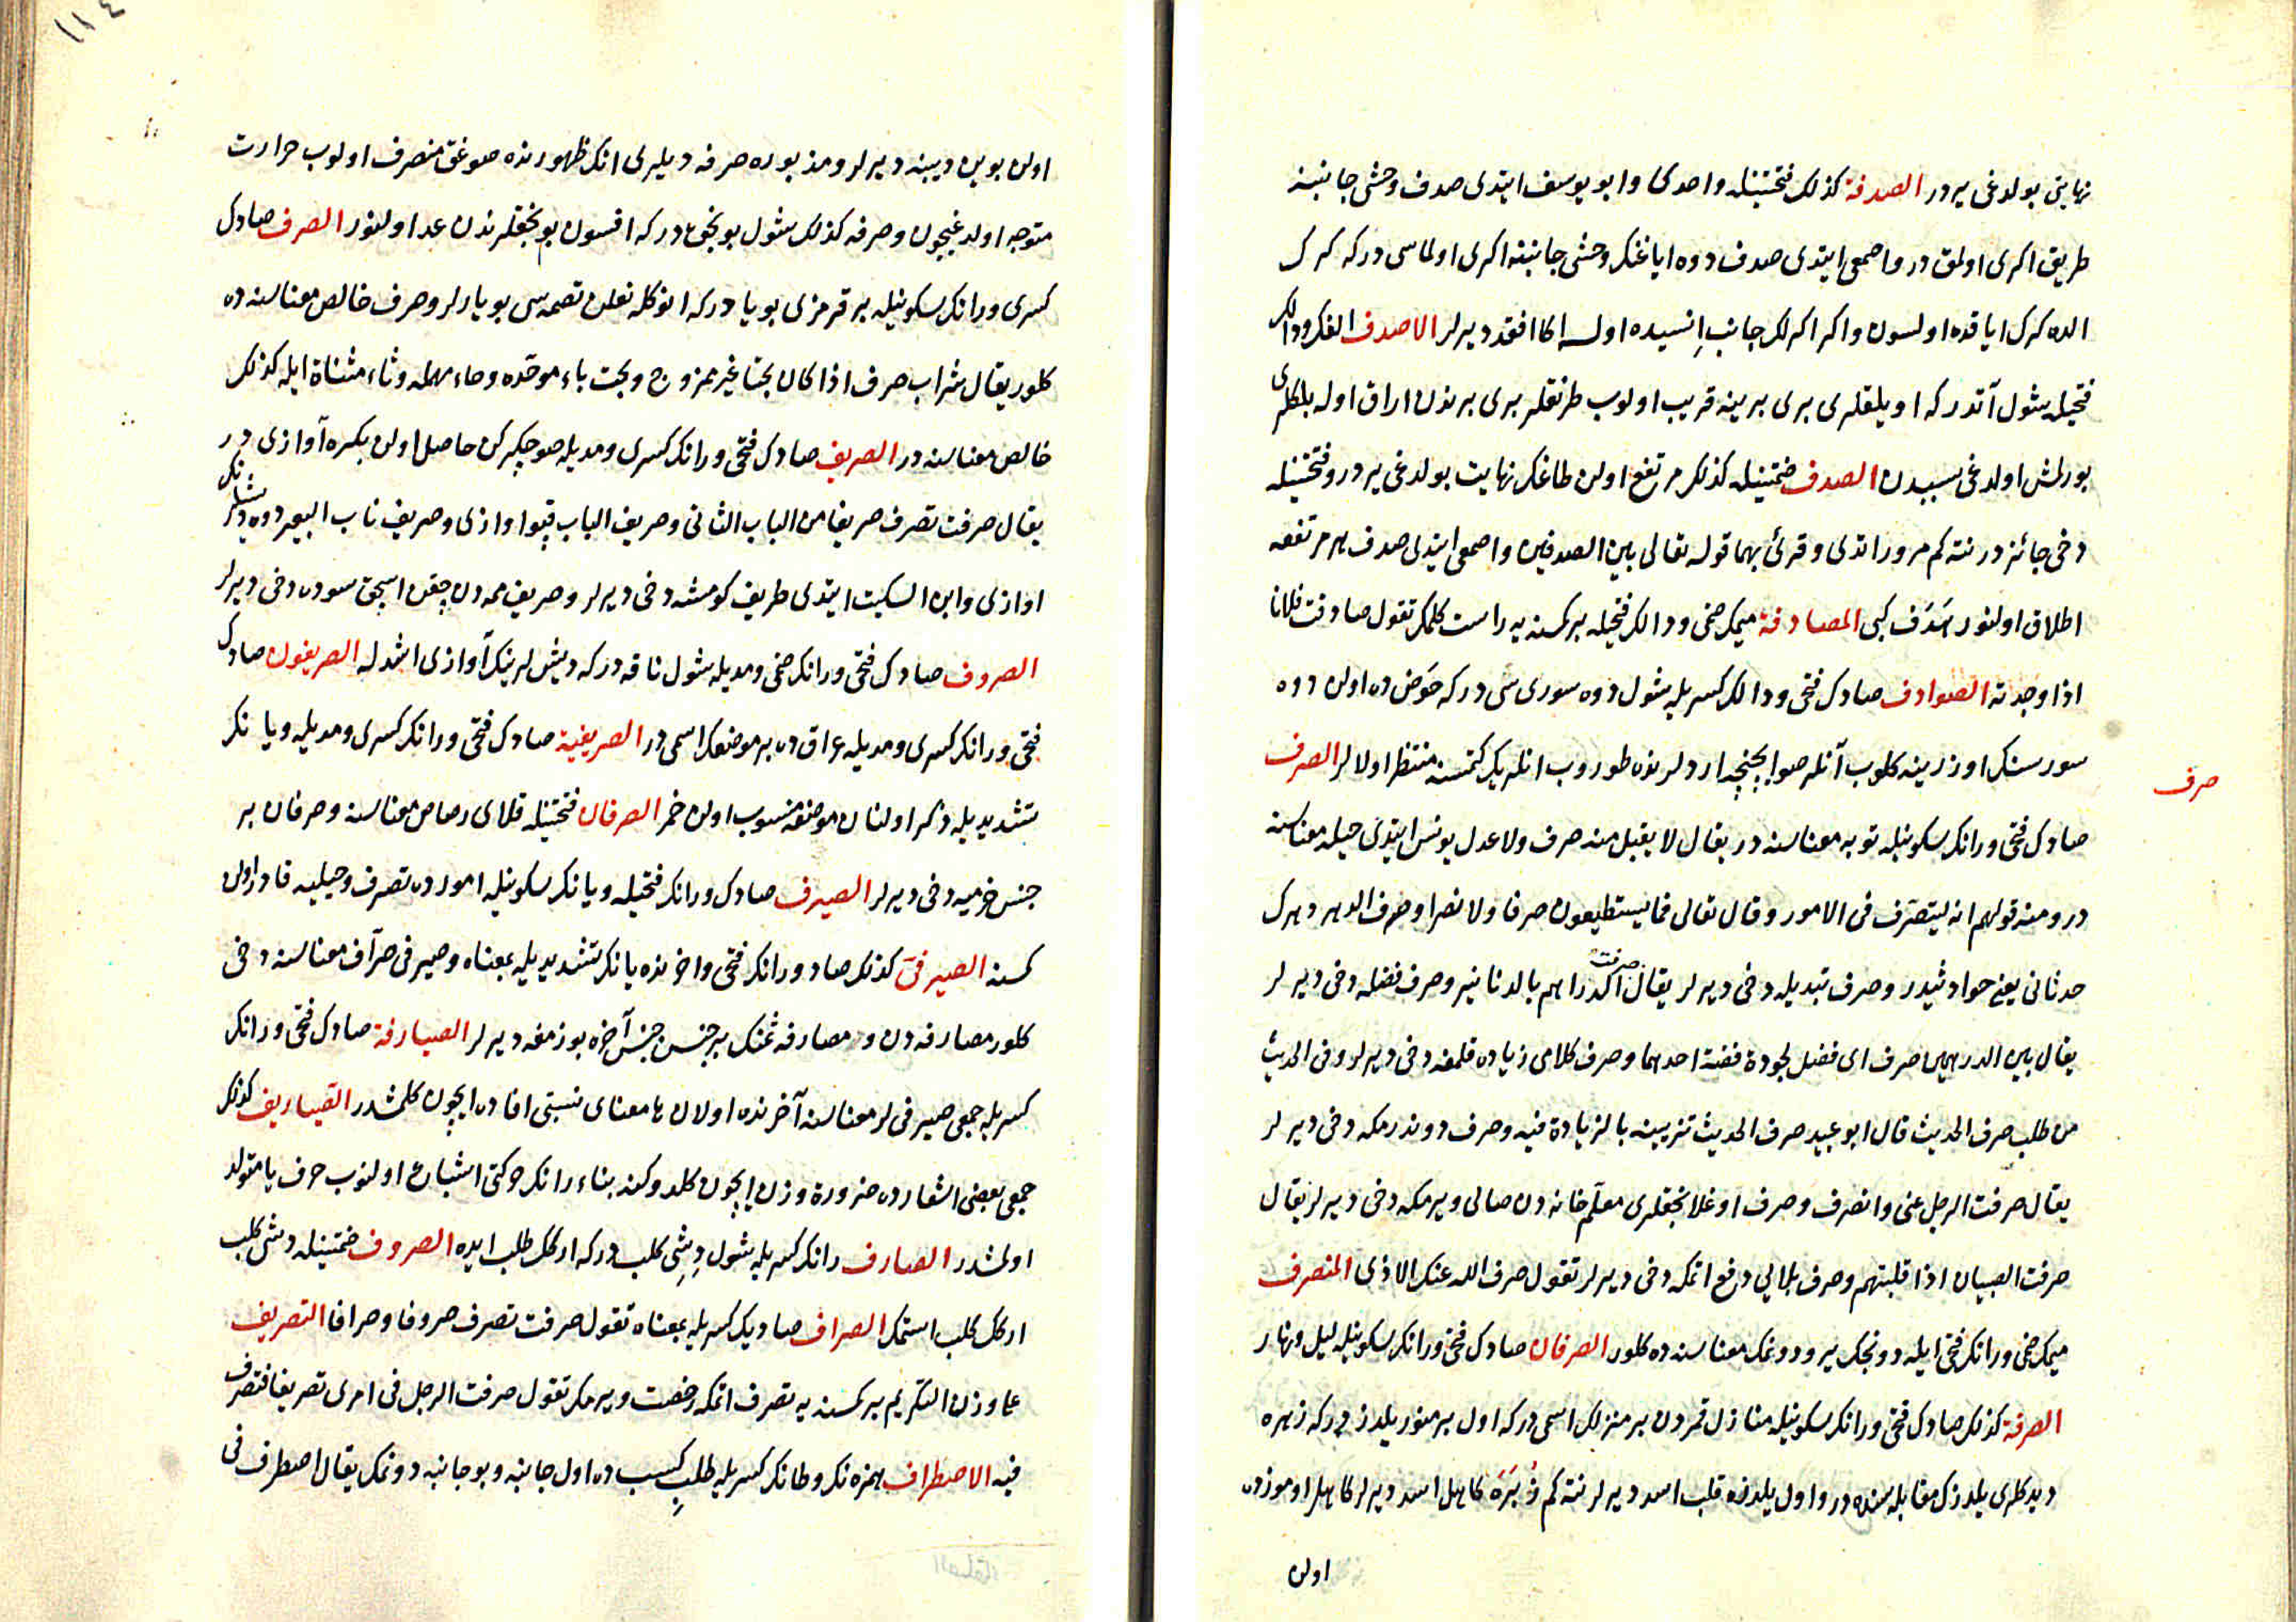 نهایتی بولدغی یردر الصدفة كذلك فتحتینله واحدی وابو یوسف ایتدی صدف وحشی جانبنه
طریق اكری اولمق در واصمعی ایتدی صدف دوه ایاغنك وحشی جانبنه اكری اولماسی دركه كرك
الده كرك ایاقده اولسون واكر اكرلك جانب انسیده اولسه اكا افقد دیرلر الاصدف الفك ودالك
فتحیله شول آتدركه اویلقلری بری برینه قریب اولوب طرنقلر بری برندن اراق اوله بلكلری
بورلمش اولدغی سببدن الصدف ضمتینله كذلك مرتفع اولن طاغك نهایت بولدغی یردر وفتحتینله
دخی جائزدر نته كم مرور اتدی وقرئ بهما قوله تعالی بین الصدفین واصمعی ایتدی صدف هر مرتفعه
اطلاق اولنور هدف كبی المصادفة میمك ضمی ودالك فتحیله بر كسنه یه راست كلمك تقول صادفت فلانا
اذا وجدته الصوادف صادك فتحی ودالك كسریله شول دوه سوری سی دركه حوض ده اولن دوه
سورسنك اوزرینه كلوب آنلر صو ایچنجه اردلرنده طوروب انلریك كتمسنه منتظر اولالر الصرف
صرف
صادك فتحی ورانك سكونیله توبه معناسنه در یقال لا یقبل منه صرف ولا عدل یونس ایتدی حیله معناسنه
در ومنه قولهم انه لیتصرف فی الامور وقال تعالی فما یستطیعون صرفا ولا نصرا وصرف الدهر دهرك
حدثانی یعنی حوادثیدر وصرف تبدیله دخی دیرلر یقال صرفت الدراهم بالدنانیر وصرف فضله دخی دیرلر
یقال بین الدرهمین صرف ای فضل لجودة فضة احدهما وصرف كلامی زیاده قلمغه دخی دیرلر وفی الحدیث
من طلب صرف الحدیث قال ابو عبید صرف الحدیث تزیینه بالزیادة فیه وصرف دوندرمكه دخی دیرلر
یقال صرفت الرجل عنی وانصرف وصرف اوغلانجقلری معلم خانه دن صالی ویرمكه دخی دیرلر یقال
صرفت الصبیان اذا قلبتهم وصرف بلالی دفع اتمكه دخی دیرلر تقول صرف الله عنك الاذی المنصرف
میمك ضمی ورانك فتحی ایله دونجك یر ودونمك معناسنه ده كلور الصرفان صادك فتحی ورانك سكونیله لیل ونهار
الصرفة كذلك صادك فتحی ورانك سكونیله منازل قمردن بر منزلك اسمی دركه اول بر منور یلدزدركه زبره
دیدكلری یلدزك مقابله سنده در واول یلدزه قلب اسد دیرلر نته كم زبره كاهل اسد دیرلر كاهل اوموزده
اولن
اولن بوین دیبنه دیرلر ومذبوره صرفه دیلیری انك ظهورنده صوغق منصرف اولوب حرارت
متوجه اولدغیچون وصرفه كذلك شول بونجقدركه افسون بونجقلرندن عد اولنور الصرف صادك
كسری ورانك سكونیله بر قرمزی بویادركه انوكله نعلن تصمه سی بویارلر وصرف خالص معناسنه ده
كلور یقال شراب صرف اذا كان بحتا غیر ممزوج وبحت باء موحده وحاء مهمله وتاء مثناة ایله كذلك
خالص معناسنه در الصریف صادك فتحی ورانك كسری ومدیله صو چكركن حاصل اولن بكره آوازی در
یقال صرفت تصرف صریفا من الباب الثانی وصریف الباب قپو اوازی وصریف ناب البعیر دوه دیشلرنك
اوازی وابن السكیت ایتدی طریف كومشه دخی دیرلر وصریف ممه دن چقن اسجق سوده دخی دیرلر
الصروف صادك فتحی ورانك ضمی ومدیله شول ناقه دركه دیشلرینك آوازی اشدله الصریفون صادك
فتحی ورانك كسری ومدیله عراق ده بر موضعك اسمی در الصریفیة صادك فتحی ورانك كسری ومدیله ویانك
تشدیدیله ذكر اولنان موضعه منسوب اولن خمر الصرفان فتحتینله قلای رصاص معناسنه وصرفان بر
جنس خرمیه دخی دیرلر الصیرف صادك ورانك فتحیله ویانك سكونیله امورده تصرف وحیلیه قادر اولن
كسنه الصیرفی كذلك صاد ورانك فتحی واخرنده یانك تشدیدیله بمعناه وصیرفی صراف معناسنه دخی
كلور مصارفه دن ومصارفه ثمنك بر جنسن جنس آخره بوزمغه دیرلر الصیارفة صادك فتحی ورانك
كسریله جمعی صیرفی لر معناسنه آخرنده اولان ها معنای نسبتی افاده ایچون كلمشدر الصیاریف كذلك
جمعی بعضی اشعارده ضرورة وزن ایچون كلدوكنه بناء رانك حركتی اشباع اولنوب حرف یا متولد
اولمشدر الصارف رانك كسریله شول دیشی كلب دركه اركك طلب ایده الصروف ضمتینله دیشی كلب
اركك كلب استمك الصراف صادیك كسریله بمعناه تقول صرفت تصرف صروفا وصرافا التصریف
علی وزن التكریم بر كسنه یه تصرف اتمكه رخصت ویرمك تقول صرفت الرجل فی امری تصریفا فتصرف
فیه الاصطراف همزه نك وطانك كسریله طلب كسب ده اول جانبه وبو جانبه دونمك یقال اصطرف فی